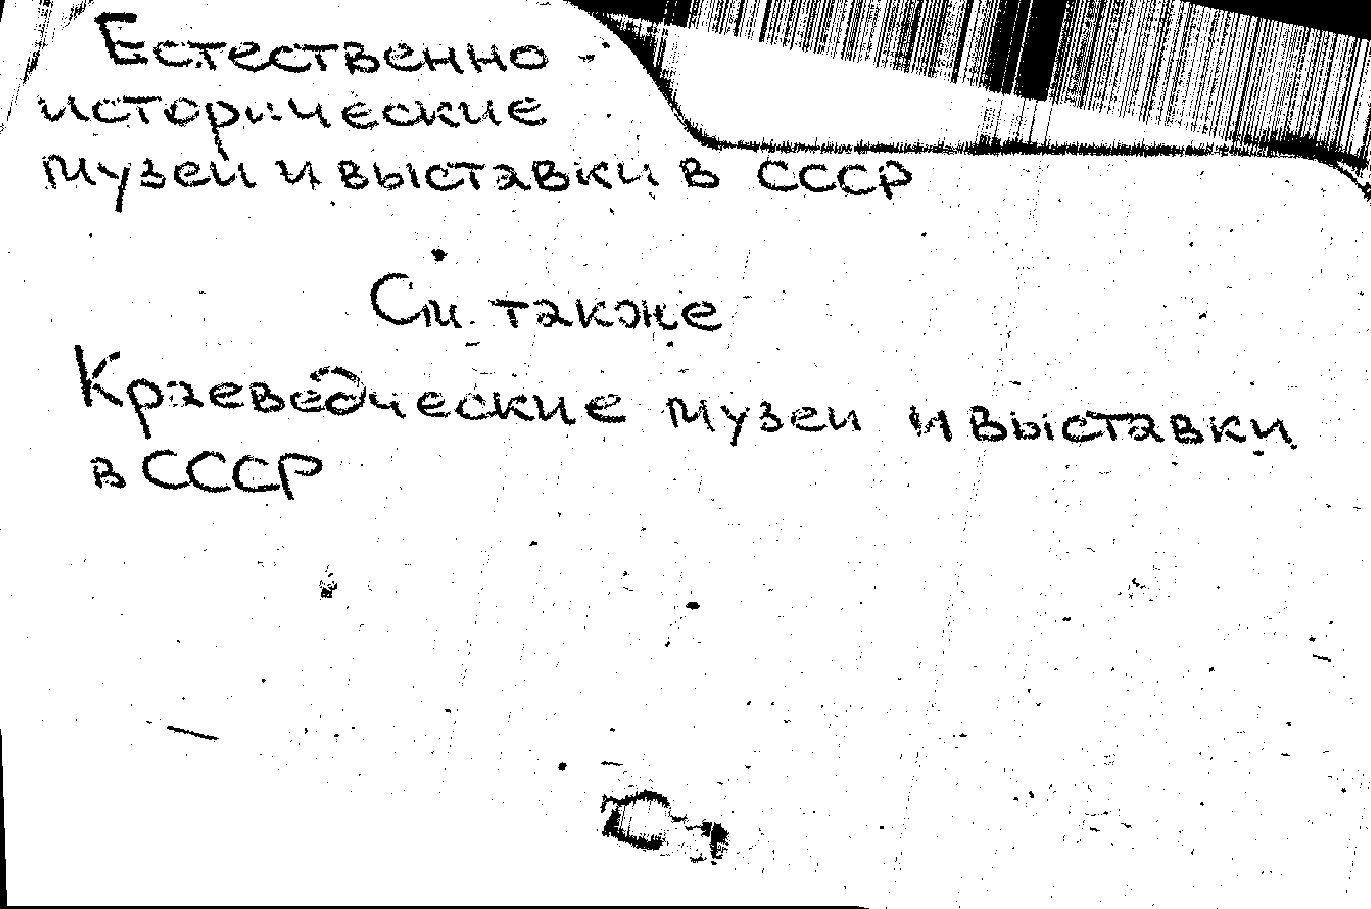 Естественно-
исторические
музеи и выставки в СССР
См. также
Краеведческие музеи и выставки
в СССР